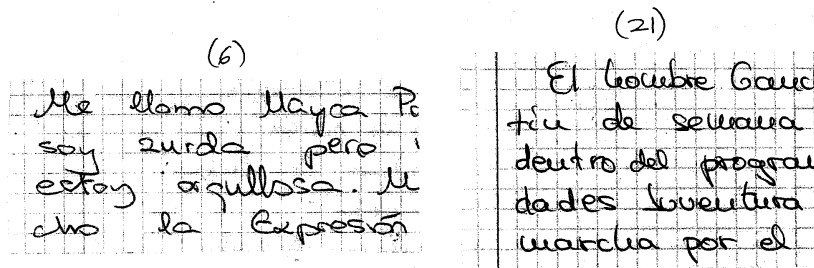 (6)
Me llamo Mayca
soy zurda pero
estoy orgullosa. M
cho la Expresión
(21)
El hombre Gauc
fin de semana
dentro del progra
dades
marcha por el